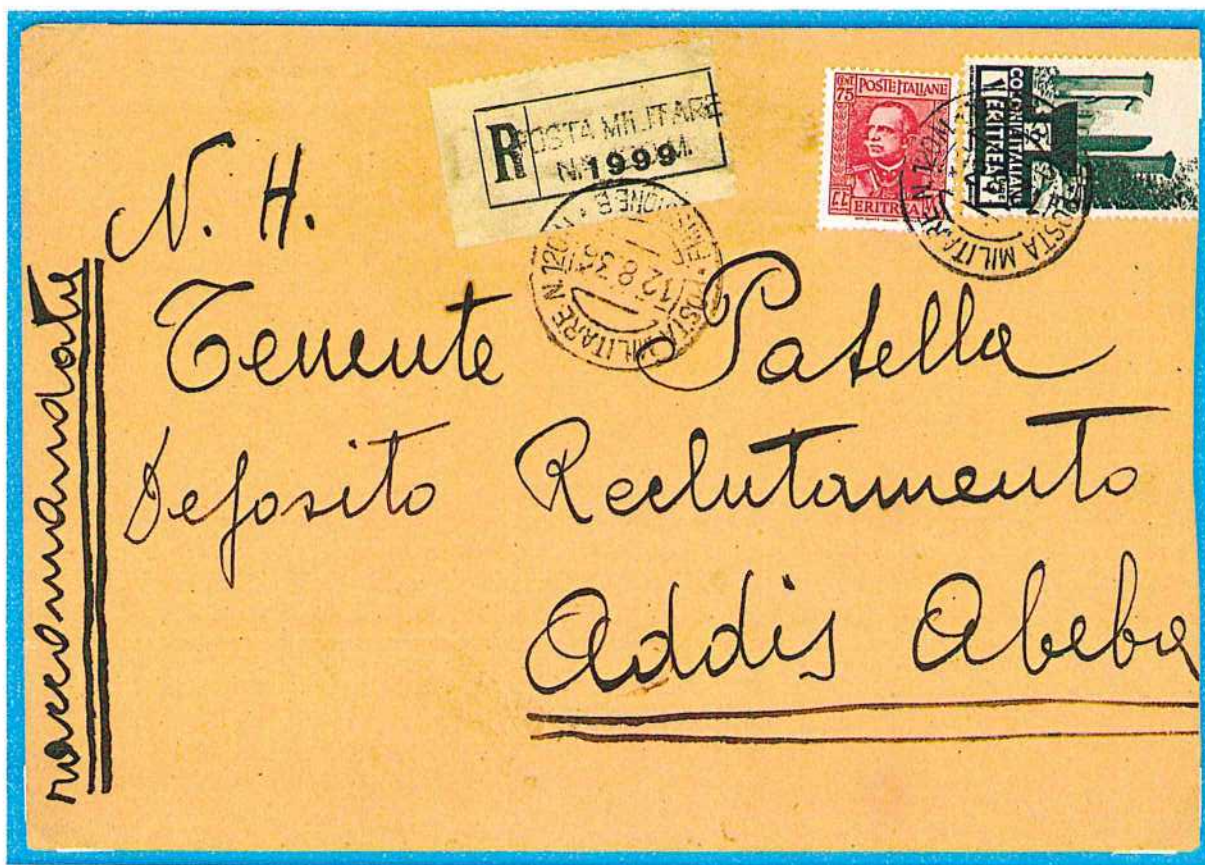 R
POSTA MILITARE
N.
1999
CENT 75
POSTE ITALIANE
ERITREA
COLONIE ITALIANE
ERITREA
POSTA MILITARE N. 120
12.8.36
POSTA MILITARE N. 120
raccomandata
N. H.
Tenente Patella
Deposito Reclutamento
Addis Abeba